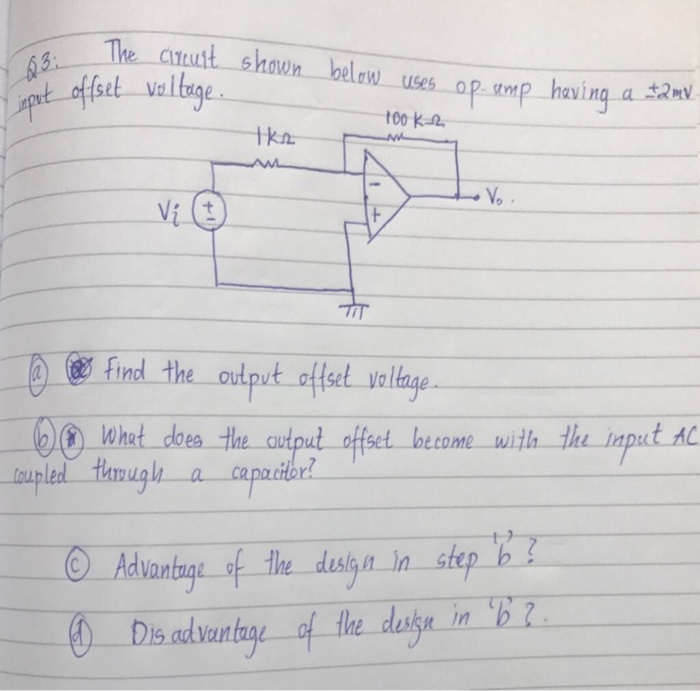 Q3: The circuit shown below uses op-amp having a ±2mV
input offset voltage.
100 KΩ
1KΩ
Vi
+
-
-
+
Vo.
(a) Find the output offset voltage.
(b) What does the output offset become with the input AC
coupled through a capacitor?
(c) Advantage of the design in step 'b'?
(d) Disadvantage of the design in 'b'?.